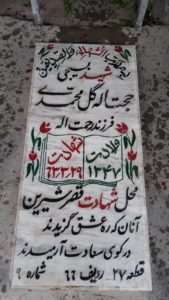 شهید بسیجی
حجت اله گل محمدی
فرزند رحمت اله
ولادت شهادت
۱۳۴۷
محل شهادت قصرشیرین
آنان که ره عشق گزیدند
در کوی سعادت آرمیدند
قطعه ۲۷ ردیف ۶۶ شماره ۹